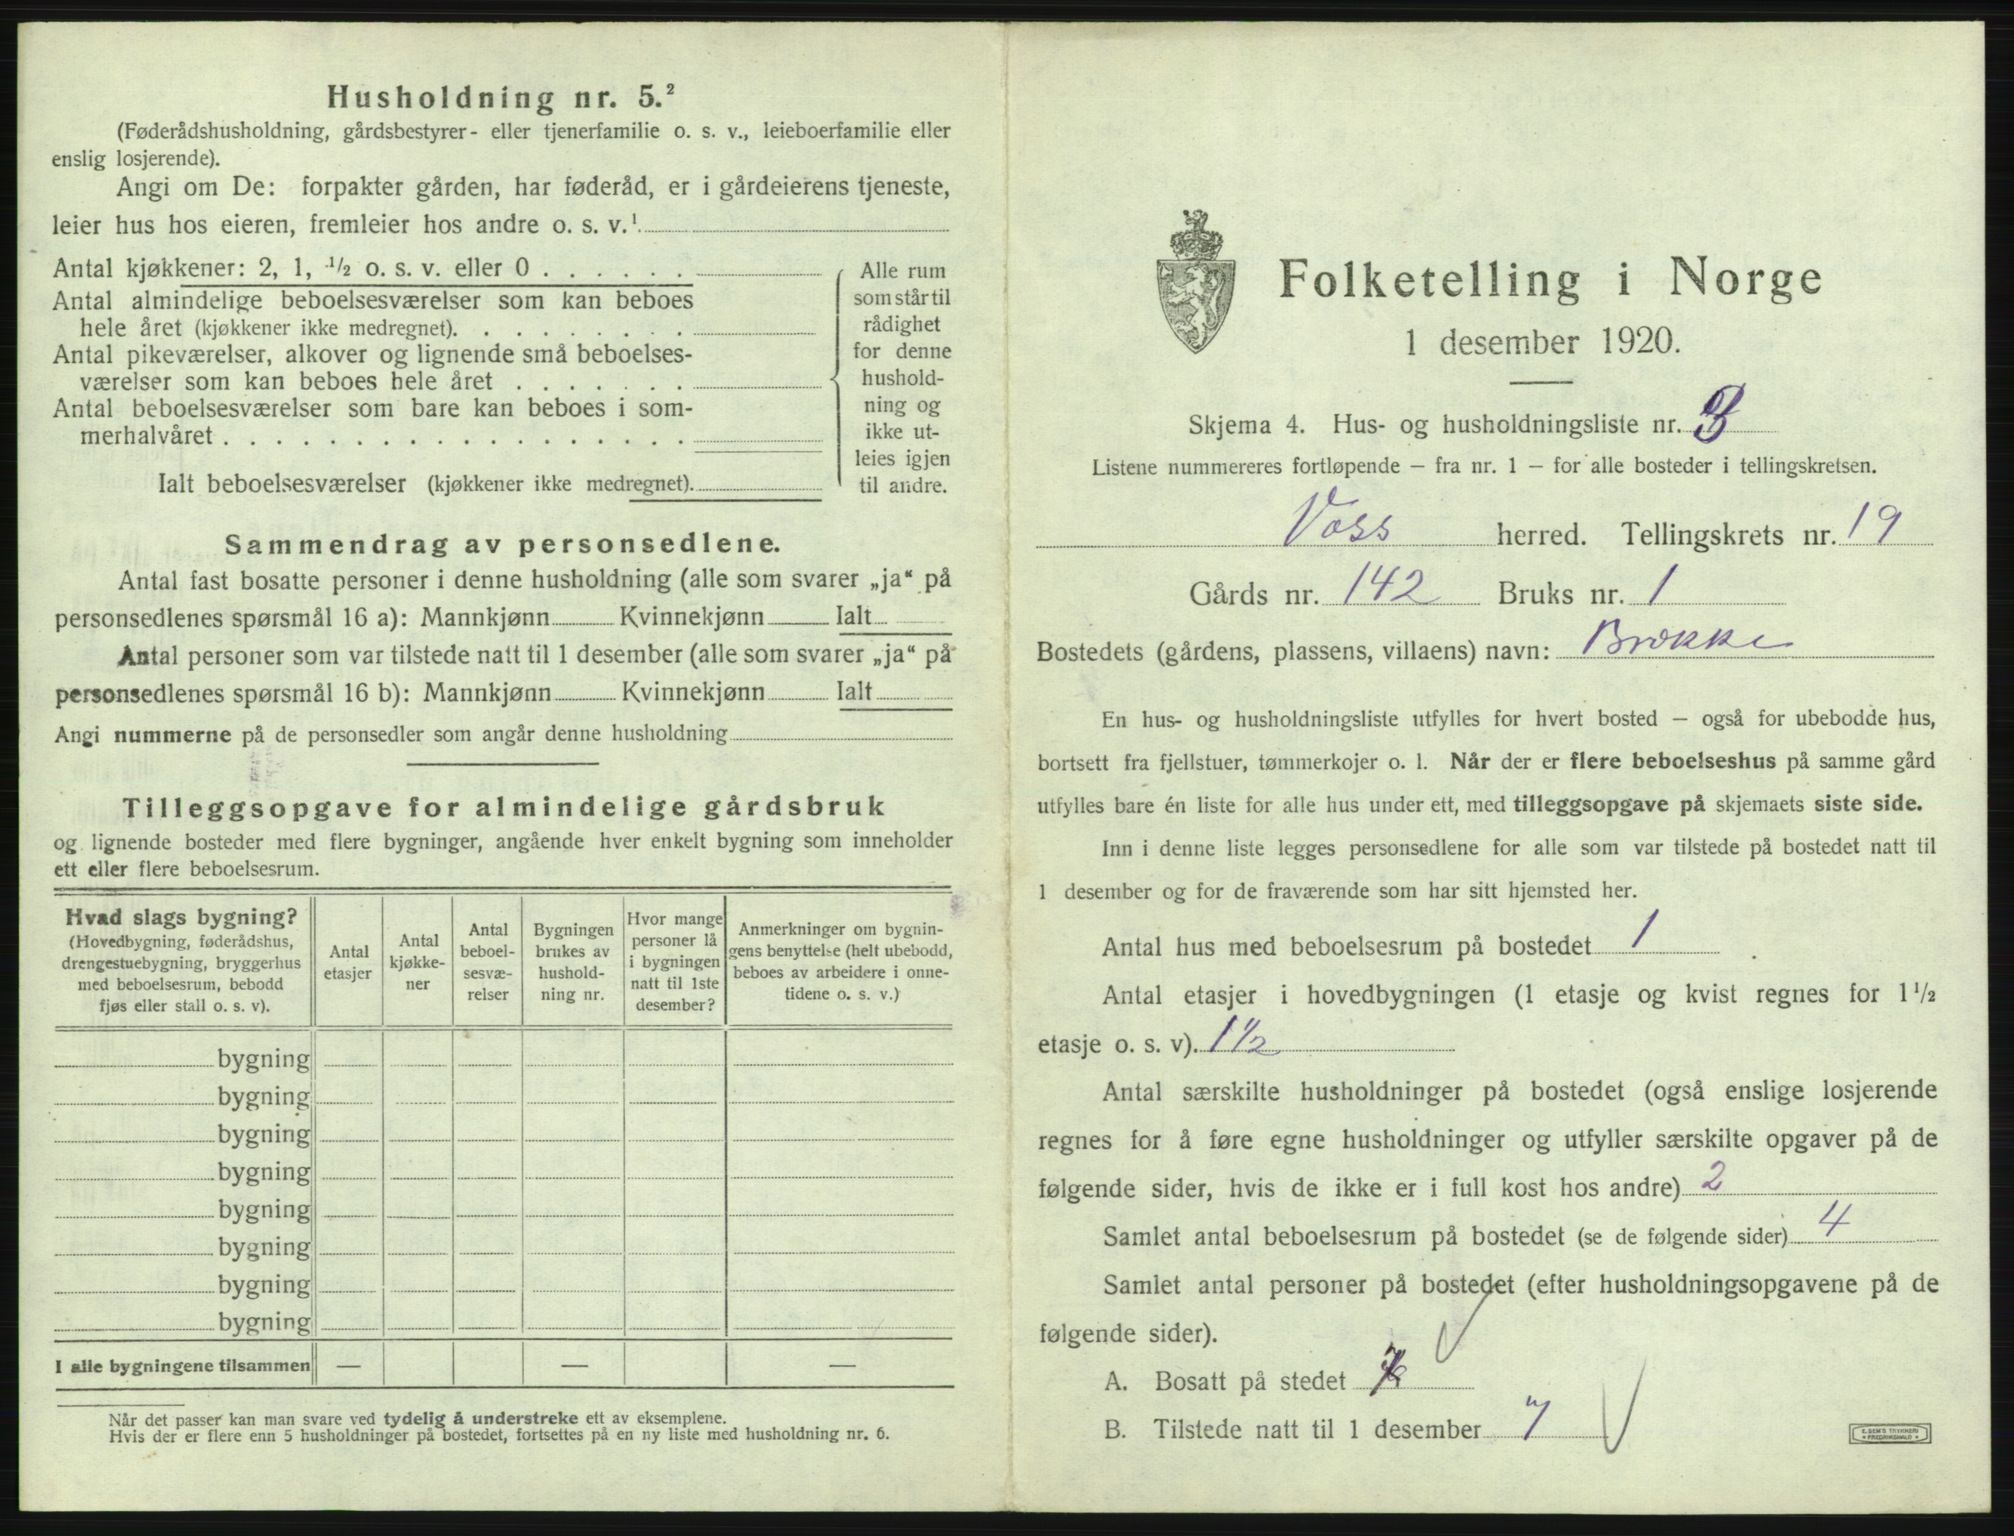 Husholdning nr. 5.²
(Føderådshusholdning, gårdsbestyrer- eller tjenerfamilie o. s. v., leieboerfamilie eller
enslig losjerende).
Angi om De: forpakter gården, har føderåd, er i gårdeierens tjeneste,
leier hus hos eieren, fremleier hos andre o. s. v.¹
Antal kjøkkener: 2, 1, ½ o. s. v. eller 0 . . . . . .
Antal almindelige beboelsesværelser som kan beboes
hele året (kjøkkener ikke medregnet). . . . . . . . .
Antal pikeværelser, alkover og lignende små beboelses-
værelser som kan beboes hele året . . . . . . .
Antal beboelsesværelser som bare kan beboes i som-
merhalvåret . . . . . . . . . . . . . . . . . .
Ialt beboelsesværelser (kjøkkener ikke medregnet).
Alle rum
som står til
rådighet
for denne
hushold-
ning og
ikke ut-
leies igjen
til andre.
Sammendrag av personsedlene.
Antal fast bosatte personer i denne husholdning (alle som svarer „ja“ på
personsedlenes spørsmål 16 a): Mannkjønn Kvinnekjønn Ialt
Antal personer som var tilstede natt til 1 desember (alle som svarer „ja“ på
personsedlenes spørsmål 16 b): Mannkjønn Kvinnekjønn Ialt
Angi nummerne på de personsedler som angår denne husholdning
Tilleggsopgave for almindelige gårdsbruk
og lignende bosteder med flere bygninger, angående hver enkelt bygning som inneholder
ett eller flere beboelsesrum.
Hvad slags bygning?
(Hovedbygning, føderådshus,
drengestuebygning, bryggerhus
med beboelsesrum, bebodd
fjøs eller stall o. s. v).
Antal
etasjer
Antal
kjøkke-
ner
Antal
beboel-
sesvæ-
relser
Bygningen
brukes av
hushold-
ning nr.
Hvor mange
personer lå
i bygningen
natt til 1ste
desember?
Anmerkninger om bygnin-
gens benyttelse (helt ubebodd,
beboes av arbeidere i onne-
tidene o. s. v.)
bygning
bygning
bygning
bygning
bygning
bygning
bygning
bygning
I alle bygningene tilsammen — — —
Når det passer kan man svare ved tydelig å understreke ett av eksemplene.
Hvis der er flere enn 5 husholdninger på bostedet, fortsettes på en ny liste med husholdning nr. 6.
Folketelling i Norge
1 desember 1920.
Skjema 4. Hus- og husholdningsliste nr. 3
Listene nummereres fortløpende – fra nr. 1 – for alle bosteder i tellingskretsen.
Voss herred. Tellingskrets nr. 19
Gårds nr. 142 Bruks nr. 1
Bostedets (gårdens, plassens, villaens) navn: Brekke
En hus- og husholdningsliste utfylles for hvert bosted – også for ubebodde hus,
bortsett fra fjellstuer, tømmerkojer o. l. Når der er flere beboelseshus på samme gård
utfylles bare én liste for alle hus under ett, med tilleggsopgave på skjemaets siste side.
Inn i denne liste legges personsedlene for alle som var tilstede på bostedet natt til
1 desember og for de fraværende som har sitt hjemsted her.
Antal hus med beboelsesrum på bostedet 1 .
Antal etasjer i hovedbygningen (1 etasje og kvist regnes for 1½
etasje o. s. v). 1½
Antal særskilte husholdninger på bostedet (også enslige losjerende
regnes for å føre egne husholdninger og utfyller særskilte opgaver på de
følgende sider, hvis de ikke er i full kost hos andre) 2
Samlet antal beboelsesrum på bostedet (se de følgende sider) 4
Samlet antal personer på bostedet (efter husholdningsopgavene på de
følgende sider).
A. Bosatt på stedet
B. Tilstede natt til 1 desember 7
E. SEM'S TRYKKERI
FREDRIKSHALD